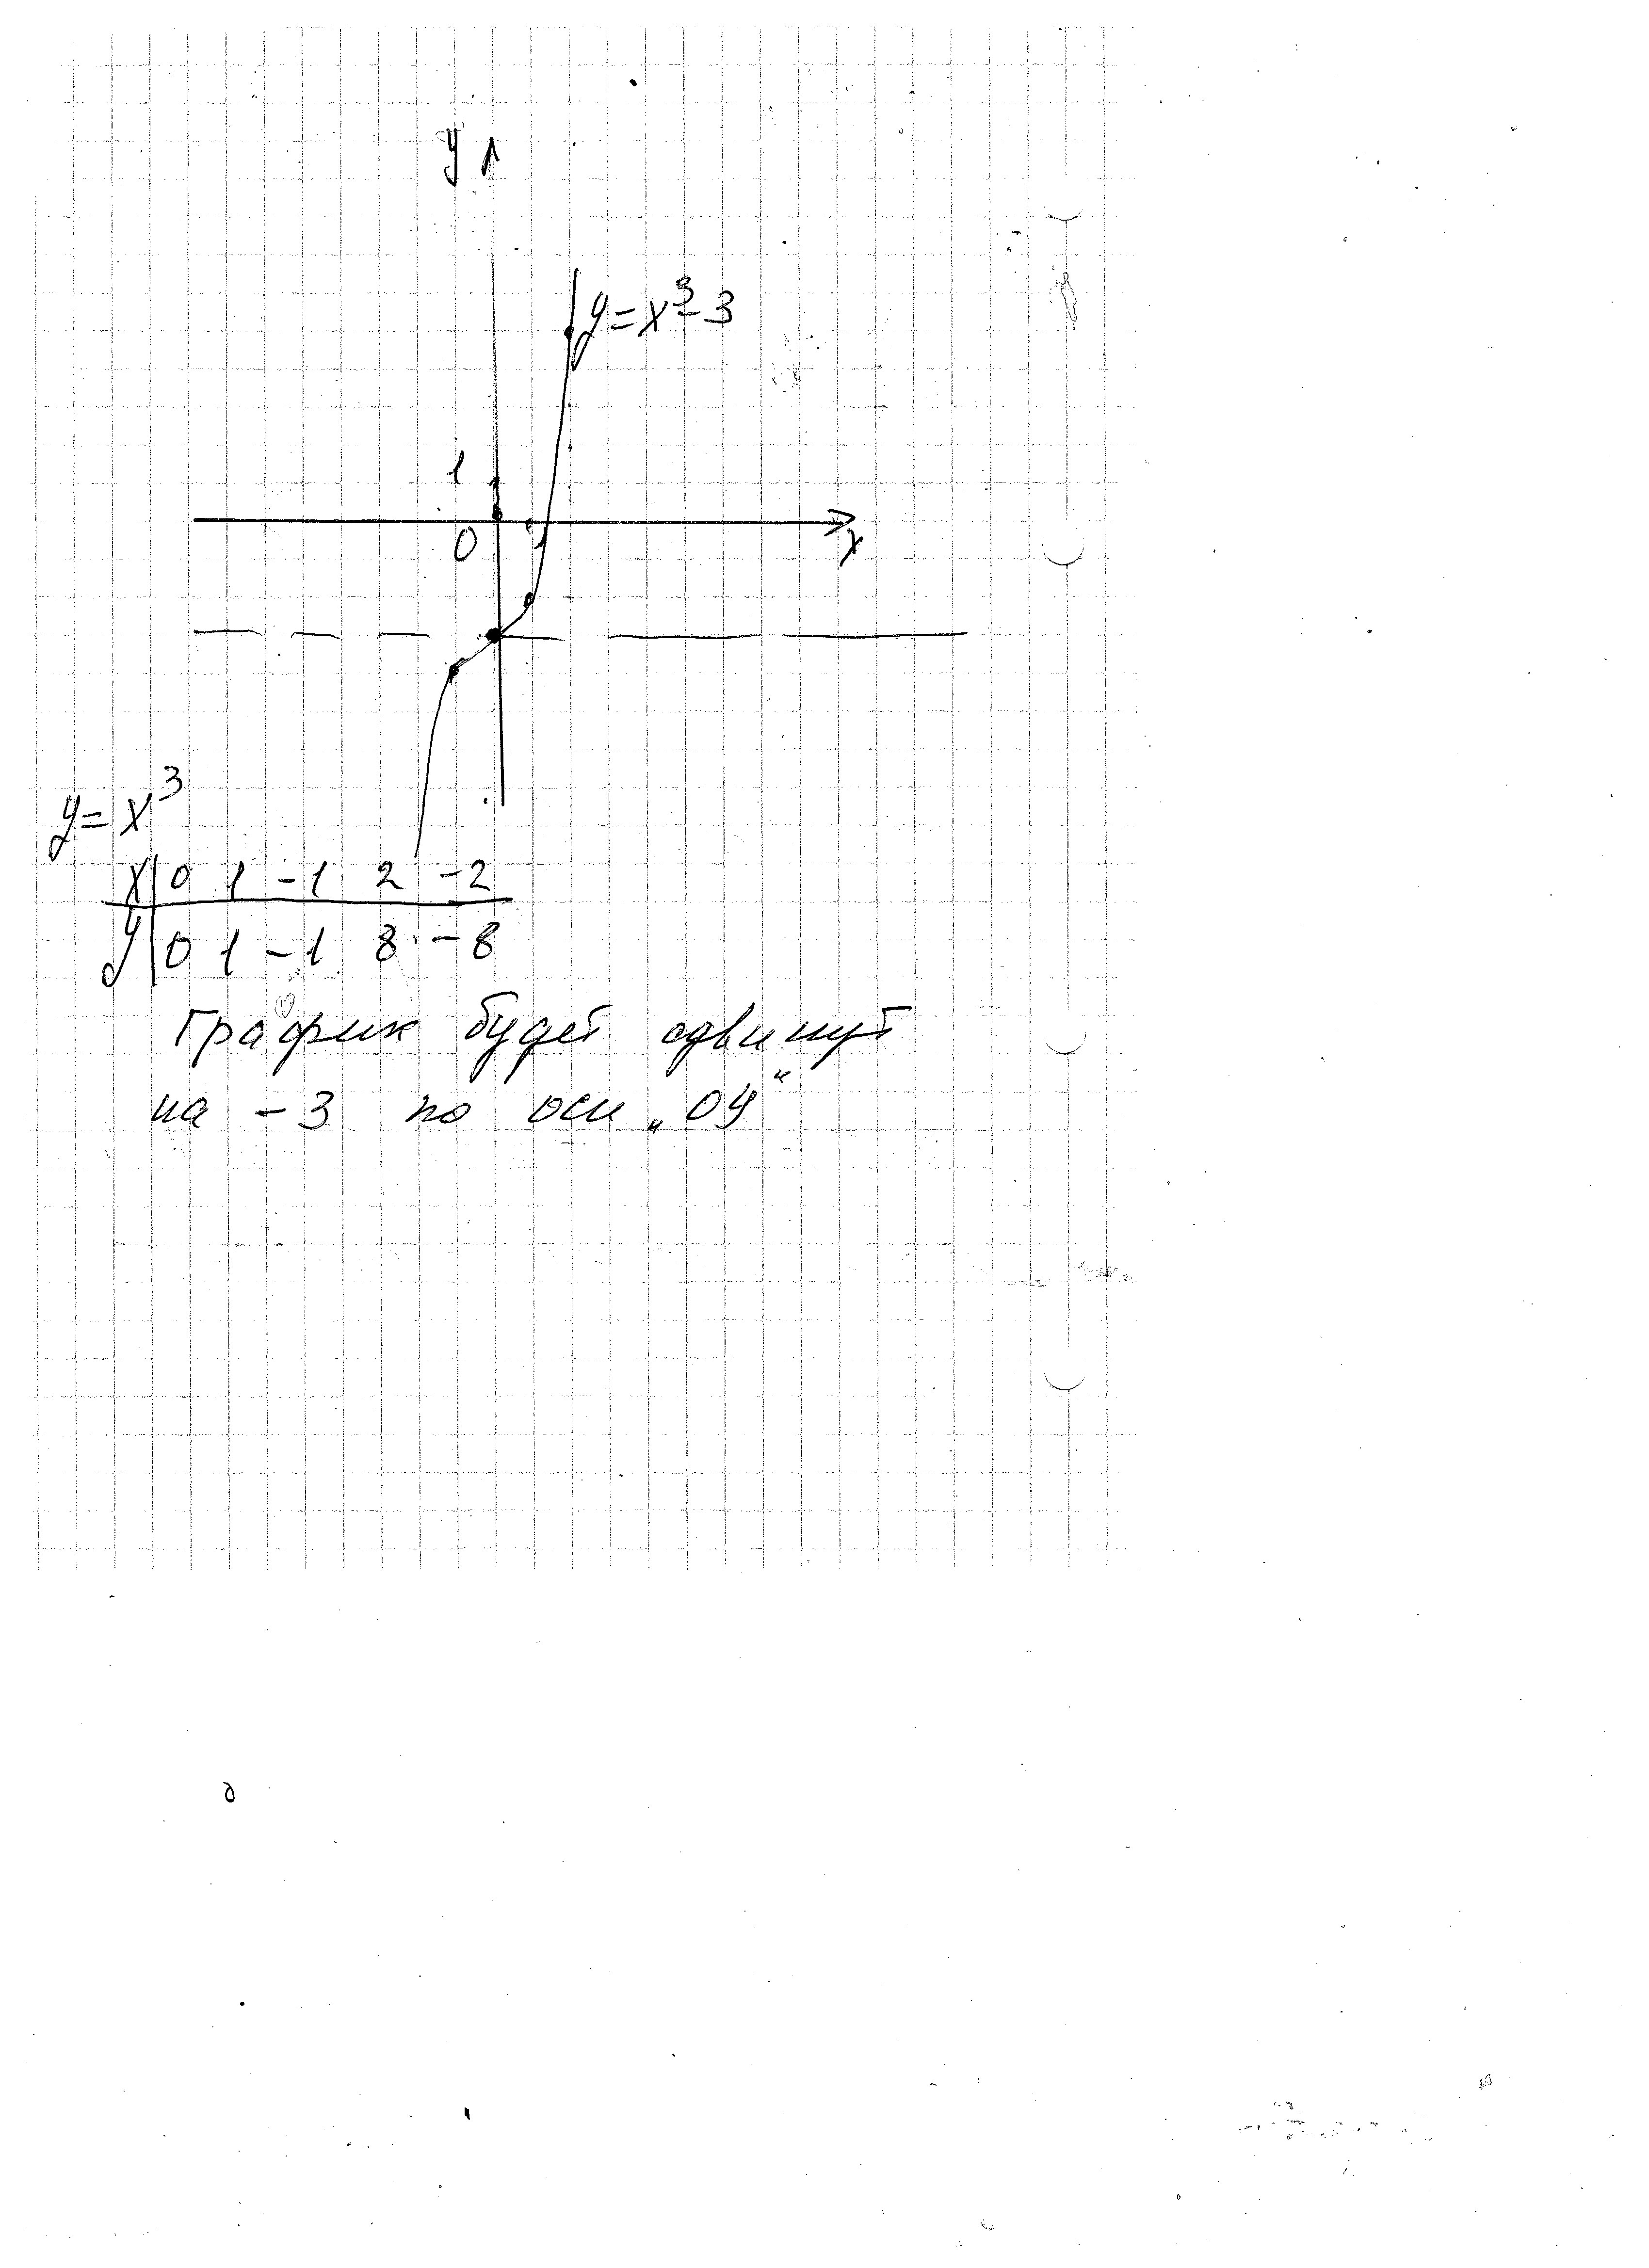 y
y = x³ - 3
1
0
x
y = x³
x | 0 1 -1 2 -2
y | 0 1 -1 8 -8
График будет сдвинут
на -3 по оси „ОУ“